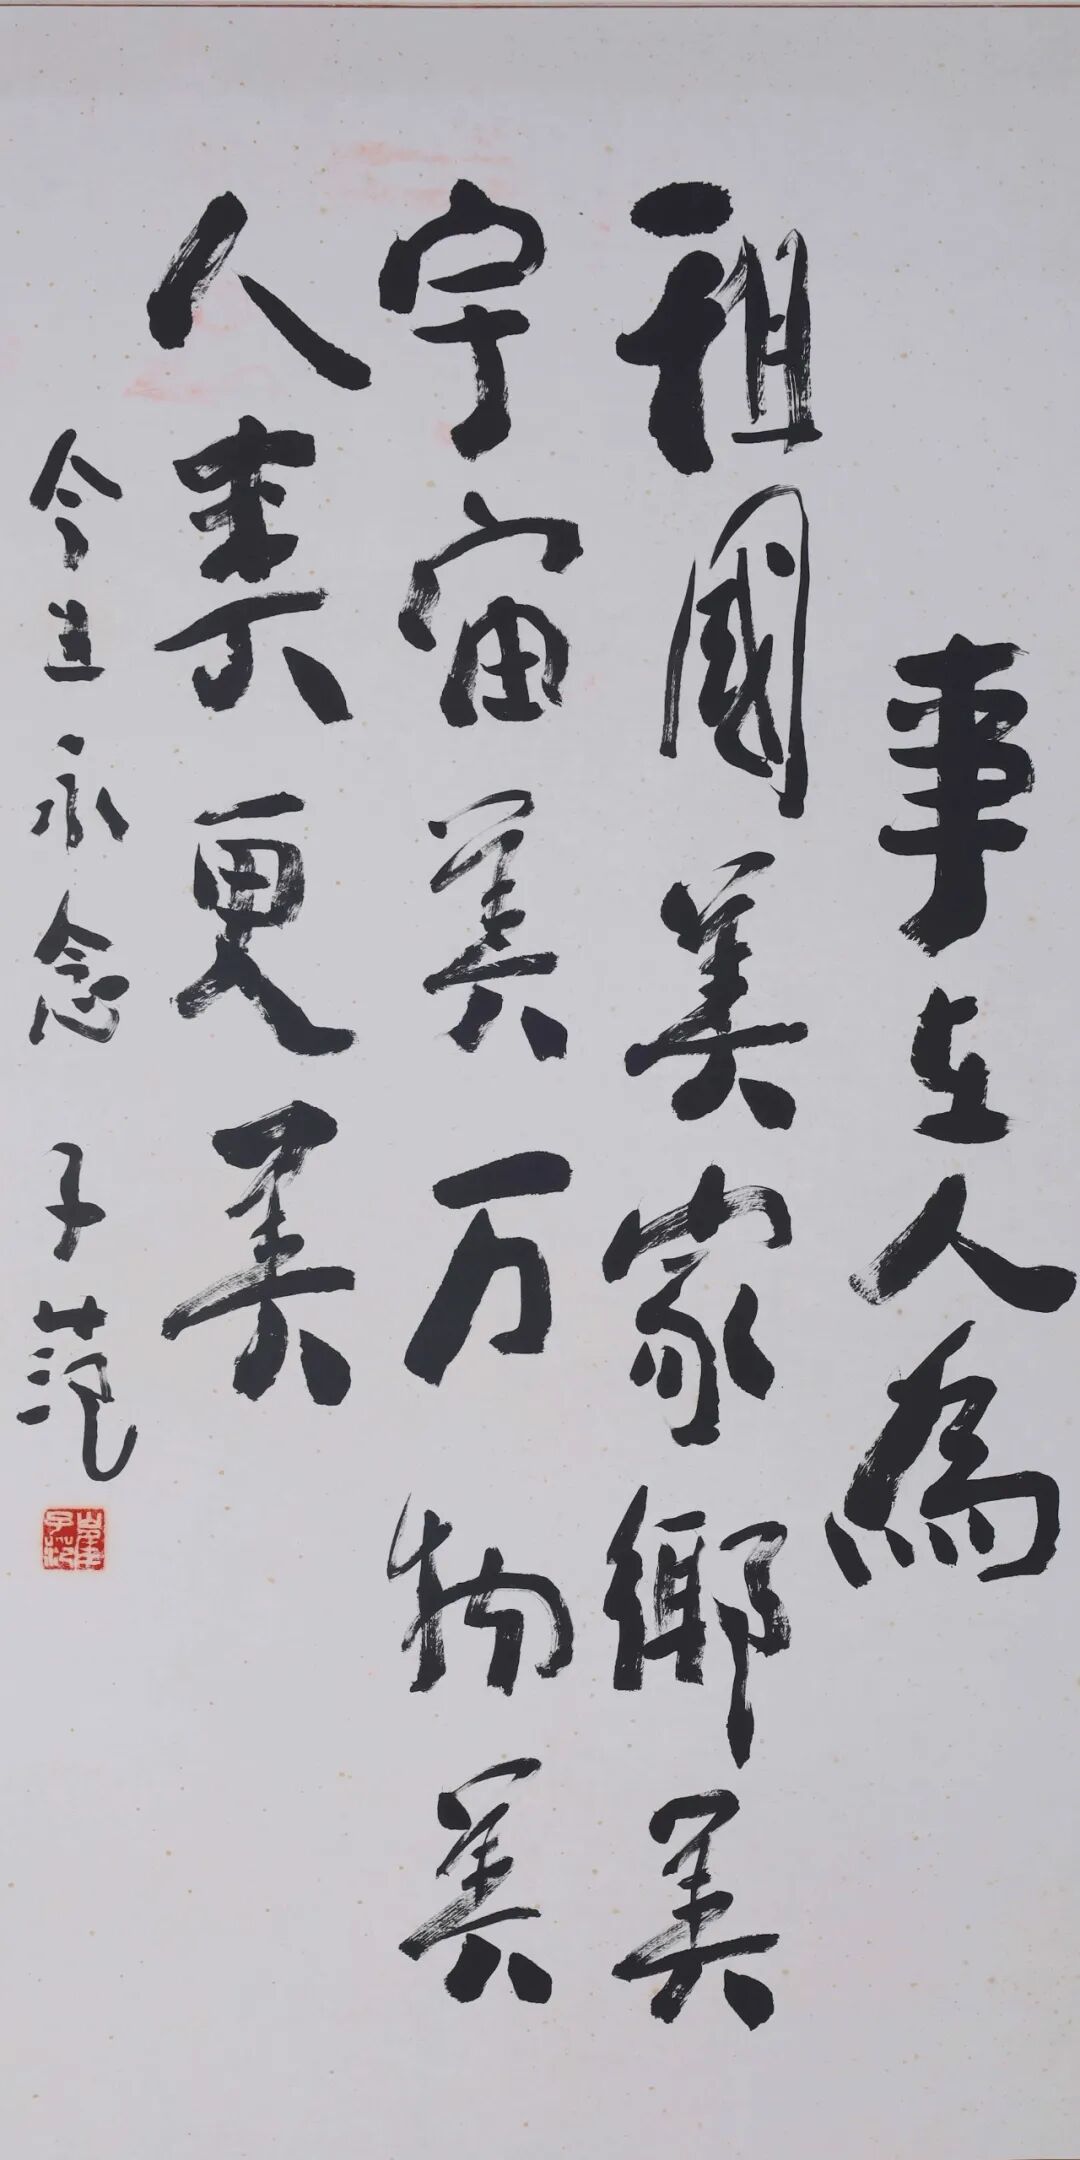 事在人為
祖國美家鄉美
宇宙美万物美
人类更美
今生永念 子范